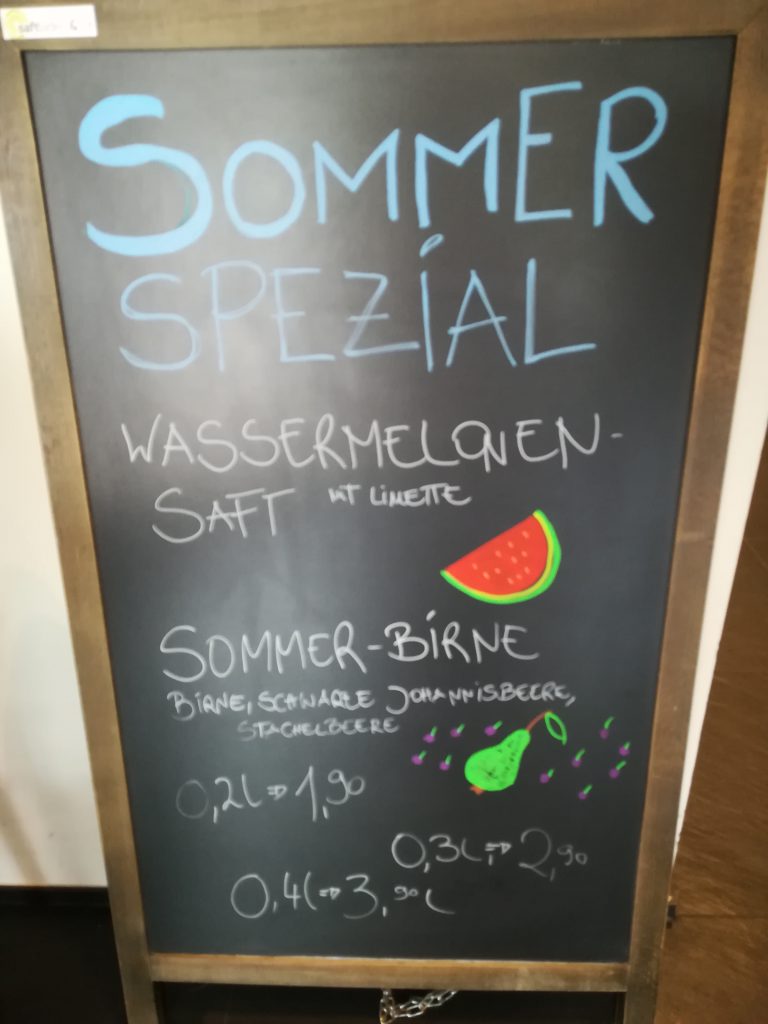 SOMMER
SPEZiAL
WASSERMELONEN-
SAFT MIT LIMETTE
SOMMER-BiRNE
BiRNE, SCHWARZE JOHANNiSBEERE,
STACHELBEERE
0,2l ⇒ 1,90
0,3l ⇒ 2,90
0,4l ⇒ 3,90